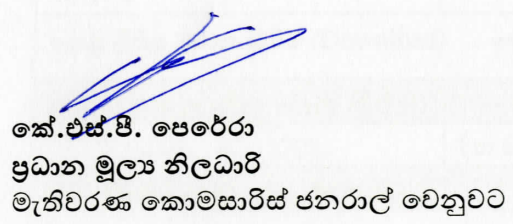 කේ.එස්.පී. පෙරේරා
ප්‍රධාන මූල්‍ය නිලධාරි
මැතිවරණ කොමසාරිස් ජනරාල් වෙනුවට